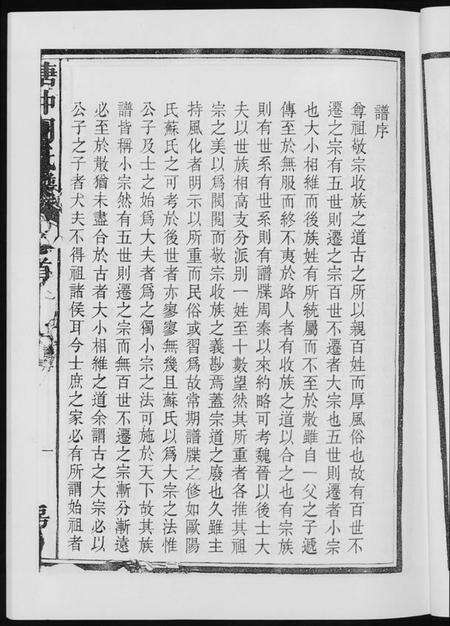 譜序
尊祖敬宗收族之道古之所以親百姓而厚風俗也故有百世不
遷之宗有五世則遷之宗百世不遷者大宗也五世則遷者小宗
也大小相維而後族姓有所統屬而不至於散雖自一父之子遞
傳至於無服而終不夷於路人者有收族之道以合之也有宗族
則有世系有世系則有譜牒周秦以來約略可考魏晉以後士大
夫以世族相高支分派別一姓至十數望然其所重者各推其祖
宗之美以爲閥閱而敬宗收族之義尠焉蓋宗道之廢也久雖主
持風化者明示以所重而民俗或習爲故常期譜牒之修如歐陽
氏蘇氏之可考於後世者亦寥寥無幾且蘇氏以爲大宗之法惟
公子及士之始爲大夫者爲之獨小宗之法可施於天下故其族
譜皆稱小宗然有五世則遷之宗而無百世不遷之宗漸分漸遠
必至於散猶未盡合於古者大小相維之道余謂古之大宗必以
公子之子者大夫不得祖諸侯耳今士庶之家必有所謂始祖者
一